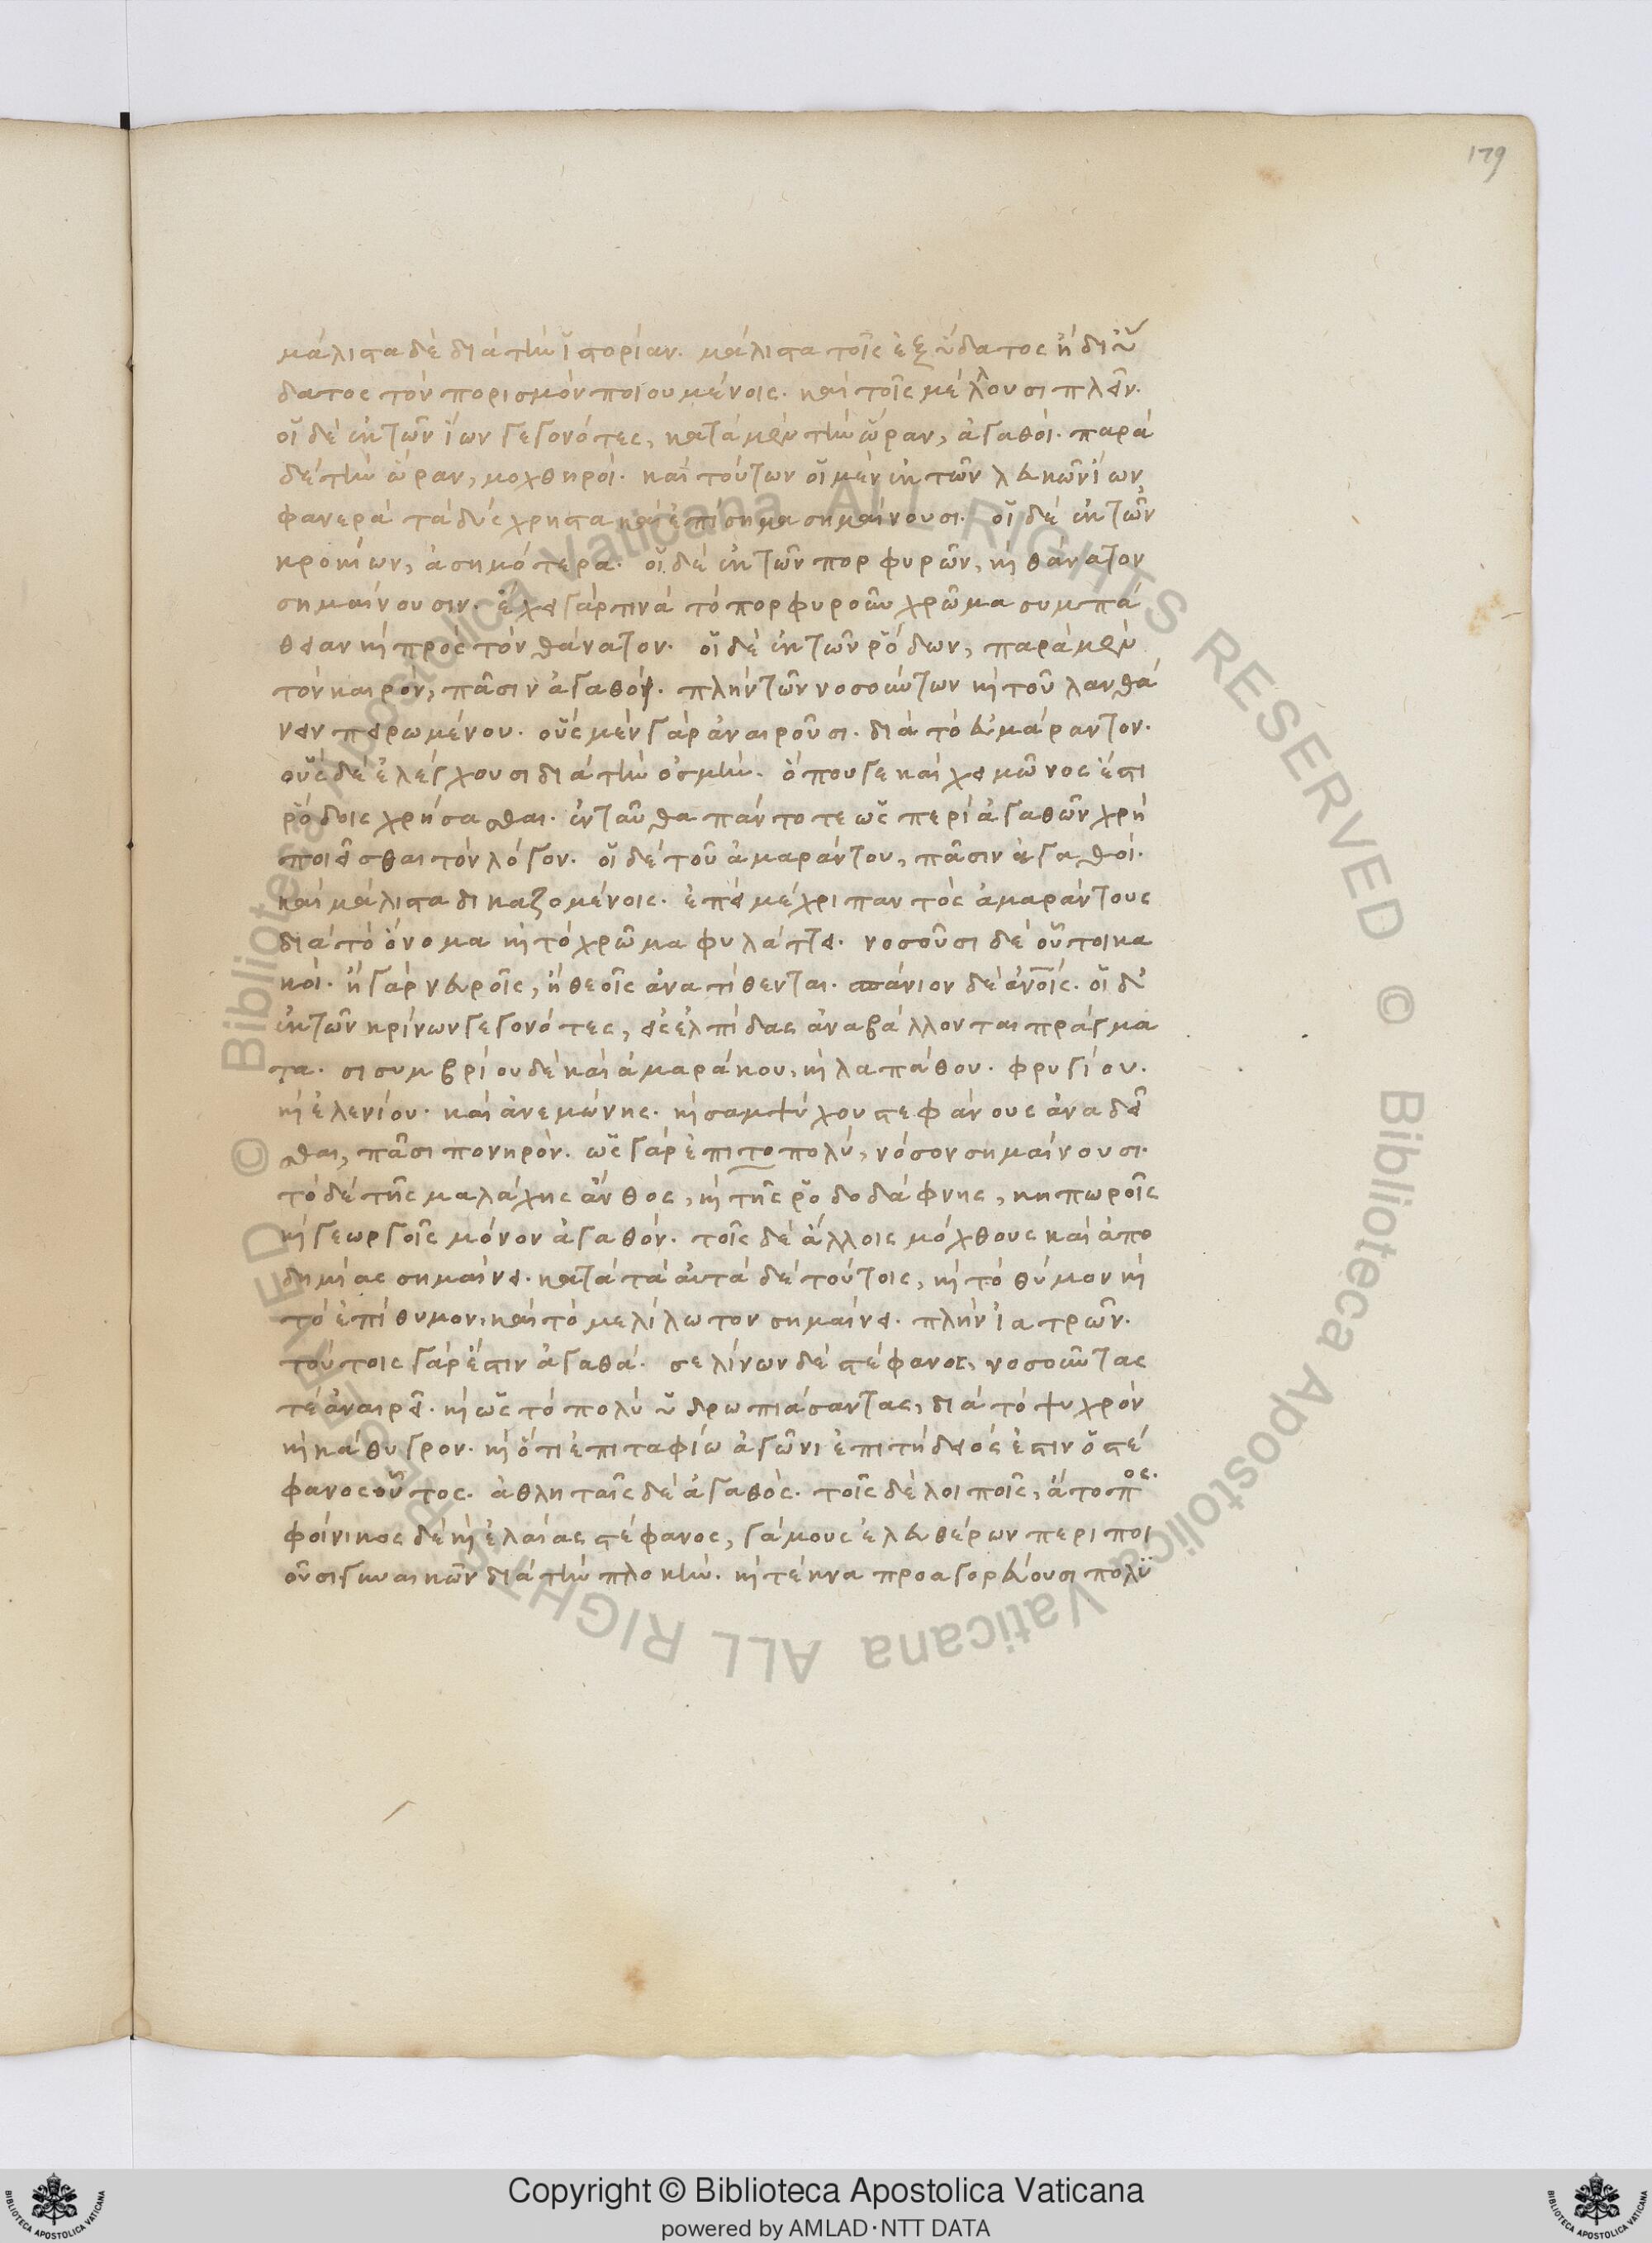 179
μάλιστα δὲ διὰ τὴν ἱστορίαν. μάλιστα τοῖς ἐξ ὕδατος ἢ δι' ὕ
δατος τὸν πορισμὸν ποιουμένοις. καὶ τοῖς μέλλουσι πλεῖν.
οἱ δὲ ἐκ τῶν ἴων γεγονότες, κατὰ μὲν τὴν ὥραν, ἀγαθοί. παρὰ
δὲ τὴν ὥραν, μοχθηροί. καὶ τούτων οἱ μὲν ἐκ τῶν λευκῶν ἴων,
φανερὰ τὰ δύσχρηστα καὶ ἐπίσημα σημαίνουσι. οἱ δὲ ἐκ τῶν
κροκίων, ἀσημότερα. οἱ δὲ ἐκ τῶν πορφυρῶν, καὶ θάνατον
σημαίνουσιν. ἔχει γάρ τινα τὸ πορφυροῦν χρῶμα συμπά
θειαν καὶ πρὸς τὸν θάνατον. οἱ δὲ ἐκ τῶν ῥόδων, παρὰ μὲν
τὸν καιρὸν, πᾶσιν ἀγαθοί. πλὴν τῶν νοσούντων καὶ τοῦ λανθά
νειν πειρωμένου. οὓς μὲν γὰρ ἀναιροῦσι. διὰ τὸ εὐμάραντον.
οὓς δὲ ἐλέγχουσι διὰ τὴν ὀσμήν. ὅπου γε καὶ χειμῶνος ἔστι
ῥόδοις χρήσασθαι. ἐνταῦθα πάντοτε ὡς περὶ ἀγαθῶν χρὴ
ποιεῖσθαι τὸν λόγον. οἱ δὲ τοῦ ἀμαράντου, πᾶσιν ἀγαθοί.
καὶ μάλιστα δικαζομένοις. ἐπεὶ μέχρι παντὸς ἀμαράντους
διὰ τὸ ὄνομα καὶ τὸ χρῶμα φυλάττει. νοσοῦσι δὲ οὗτοι κα
κοί. ἢ γὰρ νεκροῖς, ἢ θεοῖς ἀνατίθενται. σπάνιον δὲ ἀνοῖς. οἱ δὲ
ἐκ τῶν κρίνων γεγονότες, εἰς ἐλπίδας ἀναβάλλονται πράγμα
τα. σισυμβρίου δὲ καὶ ἀμαράκου, καὶ λαπάθου. φρυγίου.
καὶ ἐλενίου. καὶ ἀνεμώνης. καὶ σαμψύχου στεφάνους ἀναδεῖ
σθαι, πᾶσι πονηρόν. ὡς γὰρ ἐπιτοπολύ, νόσον σημαίνουσι.
τὸ δὲ τῆς μαλάχης ἄνθος, καὶ τῆς ῥοδοδάφνης, κηπωροῖς
καὶ γεωργοῖς μόνον ἀγαθόν. τοῖς δὲ ἄλλοις μόχθους καὶ ἀπο
δημίας σημαίνει. κατὰ τὰ αὐτὰ δὲ τούτοις, καὶ τὸ θύμον καὶ
τὸ ἐπίθυμον. καὶ τὸ μελίλωτον σημαίνει. πλὴν ἰατρῶν.
τούτοις γάρ ἐστιν ἀγαθά. σελίνων δὲ στέφανος, νοσοῦντας
τὲ ἀναιρεῖ. καὶ ὡς τὸ πολὺ ὑδρωπιάσαντας, διὰ τὸ ψυχρὸν
καὶ κάθυγρον. καὶ ὅτι ἐπιταφίω ἀγῶνι ἐπιτήδειός ἐστιν ὁ στέ
φανος οὗτος. ἀθληταῖς δὲ ἀγαθός. τοῖς δὲ λοιποῖς, ἄτοπος.
φοίνικος δὲ καὶ ἐλαίας στέφανος, γάμους ἐλευθέρων περιποι
οῦσι γυναικῶν διὰ τὴν πλοκήν. καὶ τέκνα προαγορεύουσι πολυ
Copyright © Biblioteca Apostolica Vaticana
powered by AMLAD·NTT DATA